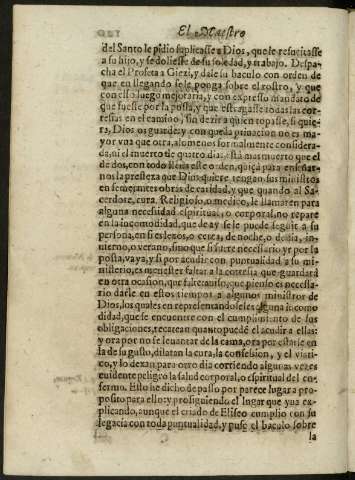 El Maestro
del Santo le pidio suplicasse a Dios, que le resucitasse
a su hijo, y se doliesse de su soledad, y trabajo. Despa-
cha el Profeta a Giezi, y dale su baculo con orden de
que en llegando se le ponga sobre el rostro, y que
con esso luego mejoraria, y con expresso mandato de
que fuesse por la posta, y que escusasse todas las cor-
tesias en el camino, sin dezir a quien topasse, si quie-
ra, Dios os guarde; y
yor vna que otra, alomenos formalmente considera-
da, ni el muerto de quatro dias está mas muerto que el
de dos, con todo Reies este orden, quiça para enseñar-
nos la presteza que Dios quiere tengan sus ministros
en semejantes obras de caridad, y que quando al Sa-
cerdote, cura, Religioso, o medico, le llamaren para
alguna necessidad espiritual, o corporal, no repare
en la incomodidad, que de ay se le puede seguir a su
persona, en si es lexos, o cerca, de noche, o de dia, in-
uierno, o verano, sino que si fuere necessario yr por la
posta, vaya, y si por acudir con puntualidad a su mi-
nisterio, es menester faltar a la cortesia que guardará
en otra ocasion, que falte
rio darle en estos tiempos a algunos ministros de
Dios, los quales en representandoseles alguna incomo
didad, que se encuentre con el cumplimiento de sus
obligaciones, recatean quanto puede el acudir a ellas:
y ora por no se leuantar de la cama, ora por estarse en
la de su gusto, dilatan la cura, la confesion, y el viati-
co, y lo dexan para otro dia corriendo algunas vezes
euidente peligro la salud corporal, o espiritual del en-
fermo. Esto he dicho de passo por parecer lugar a pro-
posito para ello: y prosiguiendo el lugar que yua ex-
plicando, aunque el criado de Eliseo cumplio con su
legacia con toda puntualidad, y puso el baculo sobre
la